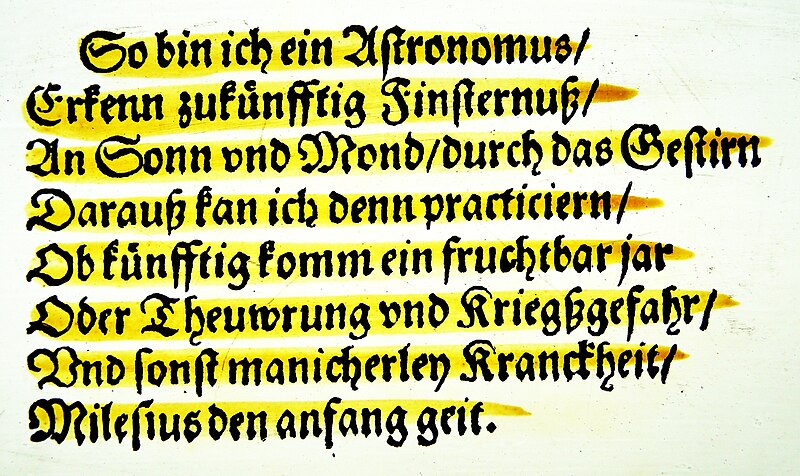 So bin ich ein Astronomus/
Erkenn zukünfftig Finsternuß/
An Sonn vnd Mond/durch das Gestirn
Darauß kan ich denn practiciern/
Ob künfftig komm ein fruchtbar jar
Oder Theuwrung vnd Kriegßgefahr/
Vnd sonst manicherley Kranckheit/
Milesius den anfang geit.